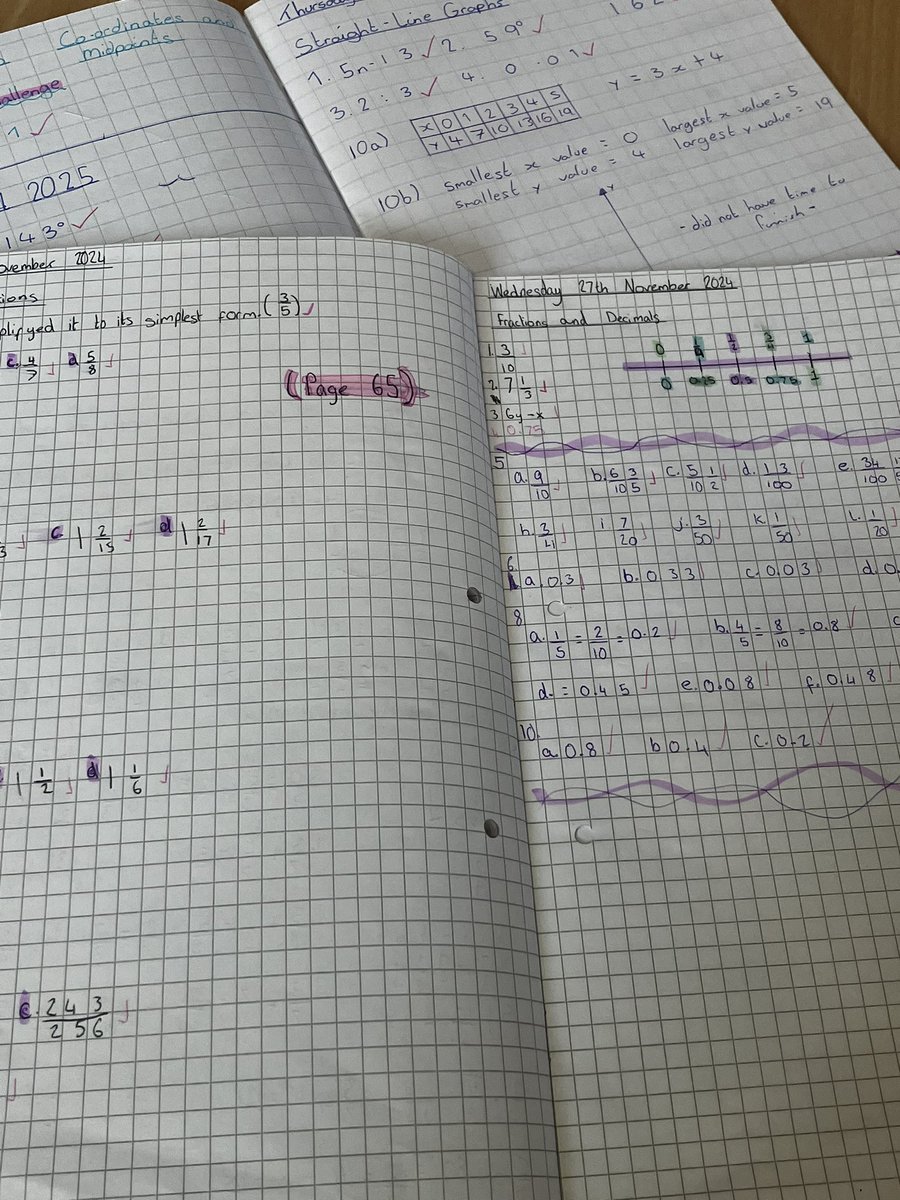 Co-ordinates and
midpoints
allenge
1 ✓
2025
143° ✓
Thursday
Straight-Line Graphs
1. 5n-13 ✓ 2. 59° ✓
3. 2:3 ✓ 4. 0.01 ✓
10a) x 0 1 2 3 4 5 y = 3x+4
y 4 7 10 13 16 19
10b) smallest x value = 0 largest x value = 5
smallest y value = 4 largest y value = 19
y
- did not have time to
finish -
ovember 2024
ions
plifyed it to its simplest form. (3/5) ✓
c. 4/7 ✓ d. 5/8 ✓
((Page 65))
c. 1 2/15 ✓ d. 1 2/17 ✓
1 1/2 ✓ d. 1 1/6 ✓
c. 243/256 ✓
Wednesday 27th November 2024
Fractions and Decimals
1. 3/10 ✓
2. 7 1/3 ✓
3. 6y-x
4. 0.75
0 1/4 1/2 3/4 1
0 0.25 0.5 0.75 1
5
a. 9/10 ✓ b. 6/10 3/5 ✓ c. 5/10 1/2 ✓ d. 13/100 ✓ e. 34/100
h. 3/4 ✓ i. 7/20 ✓ j. 3/50 ✓ k. 1/50 ✓ l. 1/20 ✓
6.
a. 0.3 ✓ b. 0.33 ✓ c. 0.03 ✓ d. 0.
8
a. 1/5 = 2/10 = 0.2 ✓ b. 4/5 = 8/10 = 0.8 ✓ c
d. = 0.45 ✓ e. 0.08 ✓ f. 0.48 ✓
10.
a. 0.8 ✓ b. 0.4 ✓ c. 0.2 ✓